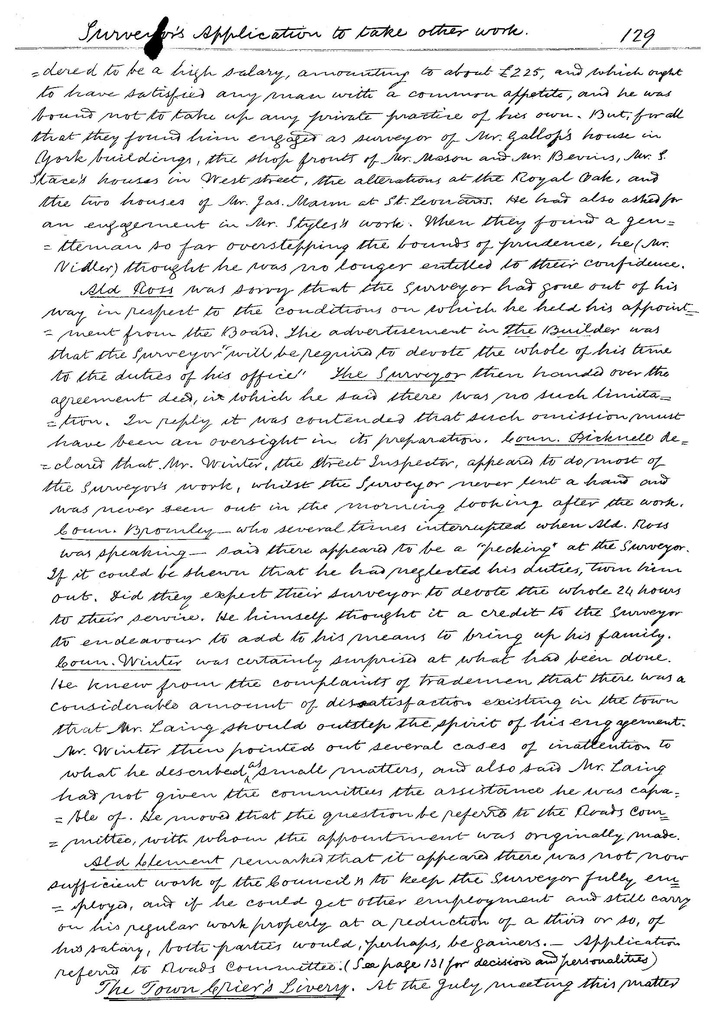 Surveyor's Application to take other work. 129
=dered to be a high salary, amounting to about £225, and which ought
to have satisfied any man with a common appetite, and he was
bound not to take up any private practice of his own. But, for all
that they found him engaged as surveyor of Mr. Gallop's house in
York buildings, the shop fronts of Mr. Mason and Mr. Bevins, Mr. S.
Stace's houses in West street, the alterations at the Royal Oak, and
the two houses of Mr. Jas. Mann at St. Leonards. He had also asked for
an engagement in Mr. Styles's work. When they found a gen=
=tleman so far overstepping the bounds of prudence, he (Mr.
Vidler) thought he was no longer entitled to their confidence.
Ald Ross was sorry that the Surveyor had gone out of his
way in respect to the conditions on which he held his appoint=
=ment from the Board. The advertisement in the Builder was
that the Surveyor "will be required to devote the whole of his time
to the duties of his office" The Surveyor then handed over the
agreement deed, in which he said there was no such limita=
=tion. In reply it was contended that such omission must
have been an oversight in its preparation. Coun. Bicknell de=
=clared that Mr. Winter, the Street Inspector, appeared to do most of
the Surveyor's work, whilst the Surveyor never lent a hand and
was never seen out in the morning looking after the work.
Coun. Bromley — who several times interrupted when Ald. Ross
was speaking — said there appeared to be a "pecking" at the Surveyor.
If it could be shewn that he had neglected his duties, turn him
out. Did they expect their surveyor to devote the whole 24 hours
to their service. He himself thought it a credit to the Surveyor
to endeavour to add to his means to bring up his family.
Coun. Winter was certainly surprised at what had been done.
He knew from the complaints of trademen that there was a
considerable amount of dissatisfaction existing in the town
that Mr. Laing should outstep the spirit of his engagement.
Mr. Winter then pointed out several cases of inattention to
what he described as small matters, and also said Mr. Laing
had not given the committees the assistance he was capa=
=ble of. He moved that the question be referred to the Roads Com=
=mittee, with whom the appointment was originally made.
Ald Clement remarked that it appeared there was not now
sufficient work of the Council's to keep the Surveyor fully em=
=ployed, and if he could get other employment and still carry
on his regular work properly at a reduction of a third or so, of
his salary, both parties would, perhaps, be gainers. — Application
referred to Roads Committee. (See page 131 for decision and personalities)
The Town Crier's Livery. At the July meeting this matter